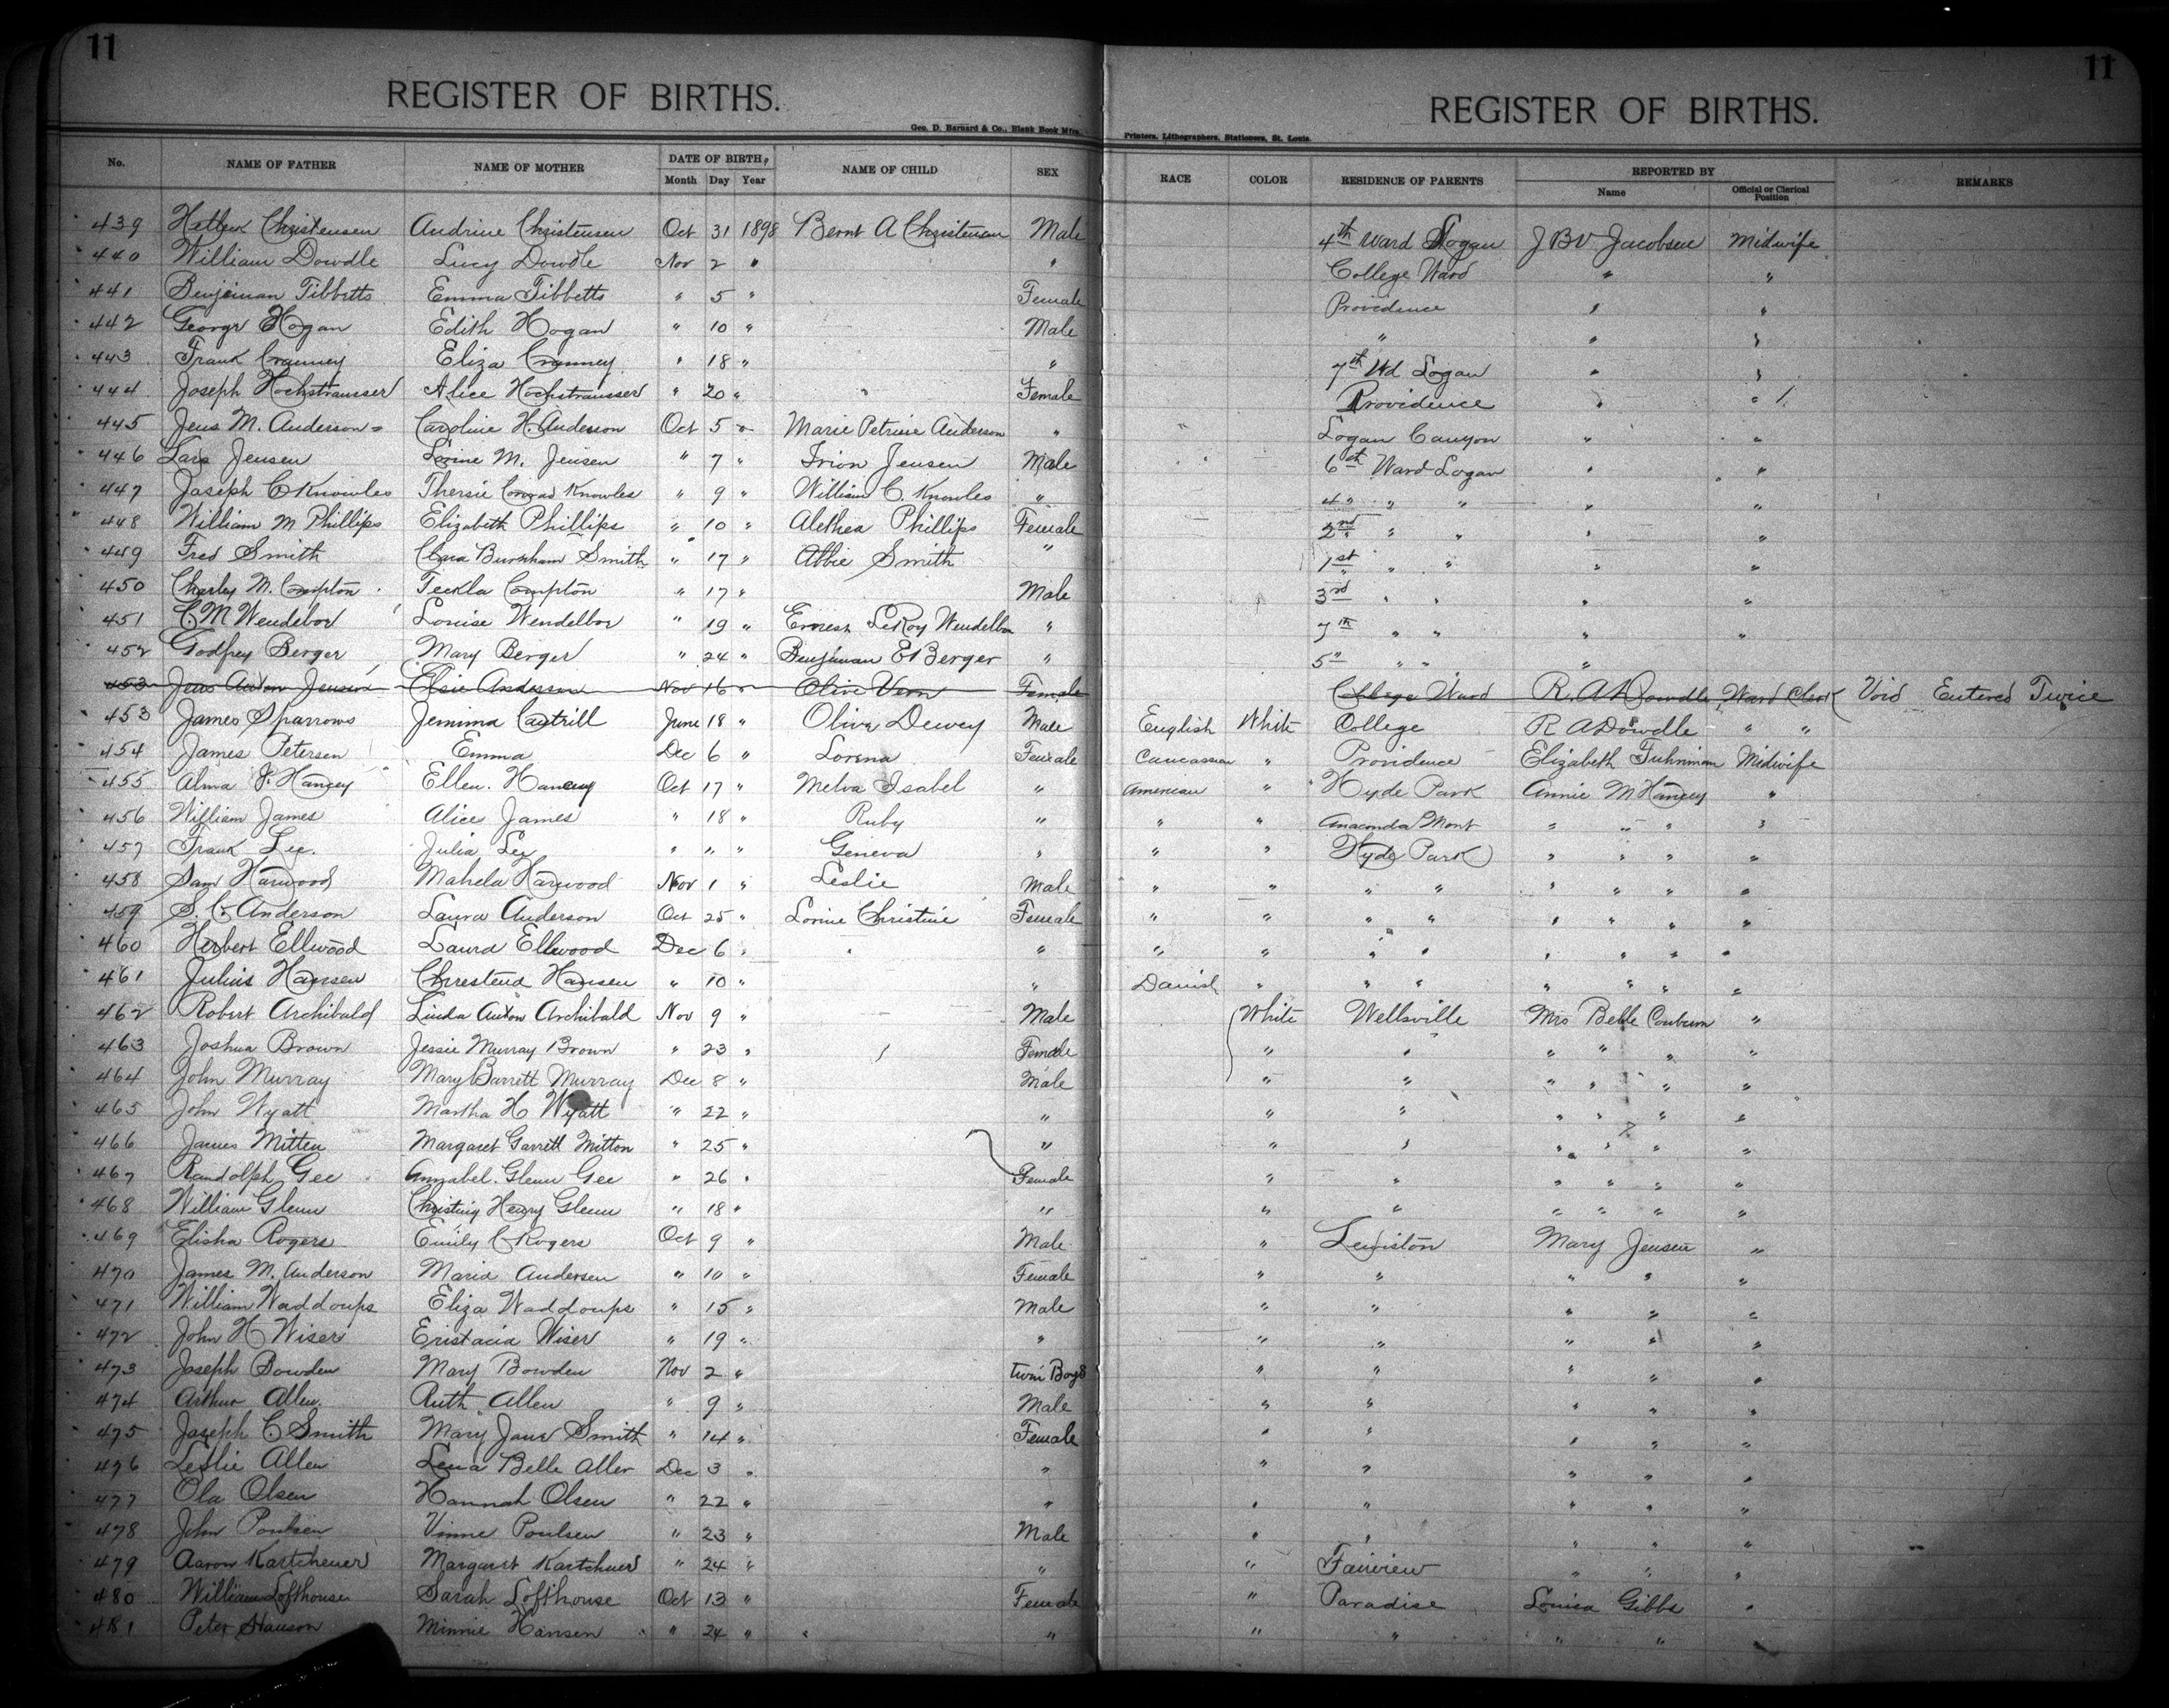 11 11
REGISTER OF BIRTHS. REGISTER OF BIRTHS.
Geo. D. Barnard & Co., Blank Book Mfrs. Printers, Lithographers, Stationers, St. Louis.
No. NAME OF FATHER NAME OF MOTHER DATE OF BIRTH, NAME OF CHILD SEX RACE COLOR RESIDENCE OF PARENTS REPORTED BY REMARKS
Month Day Year Name Official or Clerical Position
439 Christensen Andrine Christensen Oct 31 1898 Bernt A Christensen Male 4th Ward Logan J B V Jacobsen Midwife
440 William Dowdle Lucy Dowdle Nov 2 " " College Ward " "
441 Benjeman Tibbetts Emma Tibbetts " 5 " Female Providence " "
442 George Hogan Edith Hogan " 10 " Male " " "
443 Frank Cranney Eliza Cranney " 18 " " 7th Wd Logan " "
444 Joseph Hochstrausser Alice Hochstrausser " 20 " Female Providence " "
445 Jens M. Anderson Caroline H. Anderson Oct 5 " Marie Petrine Anderson " Logan Canyon " "
446 Lars Jensen M. Jensen " 7 " Irion Jensen Male 6th Ward Logan " "
447 Joseph C Knowles Thersie Conrad Knowles " 9 " William C. Knowles " 4" " " " "
448 William M Phillips Elizabeth Phillips " 10 " Alethea Phillips Female 2nd " " " "
449 Fred Smith Clara Burnham Smith " 17 " Abbie Smith " 1st " " " "
450 Charley M. Compton Teckla Compton " 17 " Male 3rd " " " "
451 C. M Wendelbov Louise Wendelbov " 19 " Ernest LeRoy Wendelbov " 7th " " " "
452 Godfrey Berger Mary Berger " 24 " Benjiman E Berger " 5" " " "
453 Jens Anton Jensen Elsie Anderson Nov 16 " Olive Vern Female College Ward R. A Dowdle Ward Clerk Void Entered Twice
453 James Sparrows Jemima Cantrill June 18 " Oliver Dewey Male English White College R A Dowdle " "
454 James Petersen Emma Dec 6 " Lorena Female Caucassian " Providence Elizabeth Fuhriman Midwife
455 Alma F. Hancey Ellen. Hancey Oct 17 " Melva Isabel " American " Hyde Park Annie M Hancey "
456 William James Alice James " 18 " Ruby " " " Anaconda Mont " " " "
457 Frank Lee. Julia Lee " " " Geneva " " " Hyde Park " " " "
458 Sam Harwood Mahela Harwood Nov 1 " Leslie Male " " " " " " " "
459 S. C. Anderson Laura Anderson Oct 25 " Lorine Christine Female " " " " " " " "
460 Herbert Ellwood Laura Ellwood Dec 6 " " " " " " " " " "
461 Julius Hansen Chrestena Hansen " 10 " " Danish " " " " " " "
462 Robert Archibald Linda Anton Archibald Nov 9 " Male White Wellsville Mrs Belle "
463 Joshua Brown Jessie Murray Brown " 23 " Female " " " " " "
464 John Murray Mary Barrett Murray Dec 8 " Male " " " " " "
465 John Wyatt Martha H Wyatt " 22 " " " " " " " "
466 James Mitten Margaret Garrett Mitton " 25 " " " " " " " "
467 Randolph Gee Annabel. Glenn Gee " 26 " Female " " " " " "
468 William Glenn Christiny Henry Glenn " 18 " " " " " " " "
469 Elisha Rogers Emily C Rogers Oct 9 " Male " Lewiston Mary Jensen "
470 James M. Anderson Maria Andersen " 10 " Female " " " " "
471 William Waddoups Eliza Waddoups " 15 " Male " " " " "
472 John H Wiser Eristacia Wiser " 19 " " " " " " "
473 Joseph Bowden Mary Bowden Nov 2 " twin Boys " " " " "
474 Arthur Allen. Ruth Allen " 9 " Male " " " " "
475 Joseph C Smith Mary Jane Smith " 14 " Female " " " " "
476 Leslie Allen Lena Belle Allen Dec 3 " " " " " " "
477 Ola Olsen Hannah Olsen " 22 " " " " " " "
478 John Poulsen Vinne Poulsen " 23 " Male " " " " "
479 Aaron Kartchener Margaret Kartchner " 24 " " " Fairview " " "
480 William Lofthouse Sarah Lofthouse Oct 13 " Female " Paradise Louisa Gibbs "
481 Peter Hanson Minnie Hansen " 24 " " " " " "